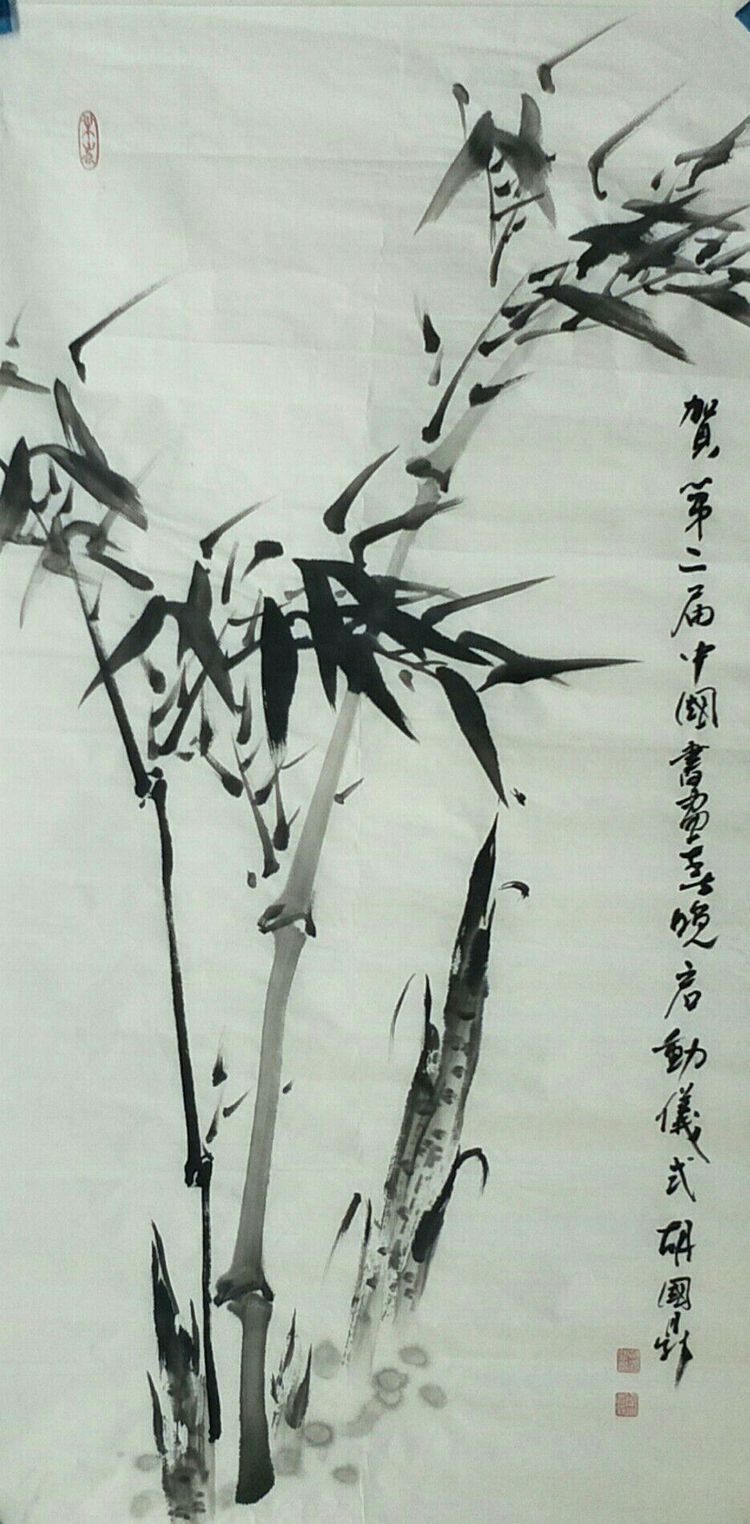 賀第二届中國書畫春晚启動儀式胡國鼎